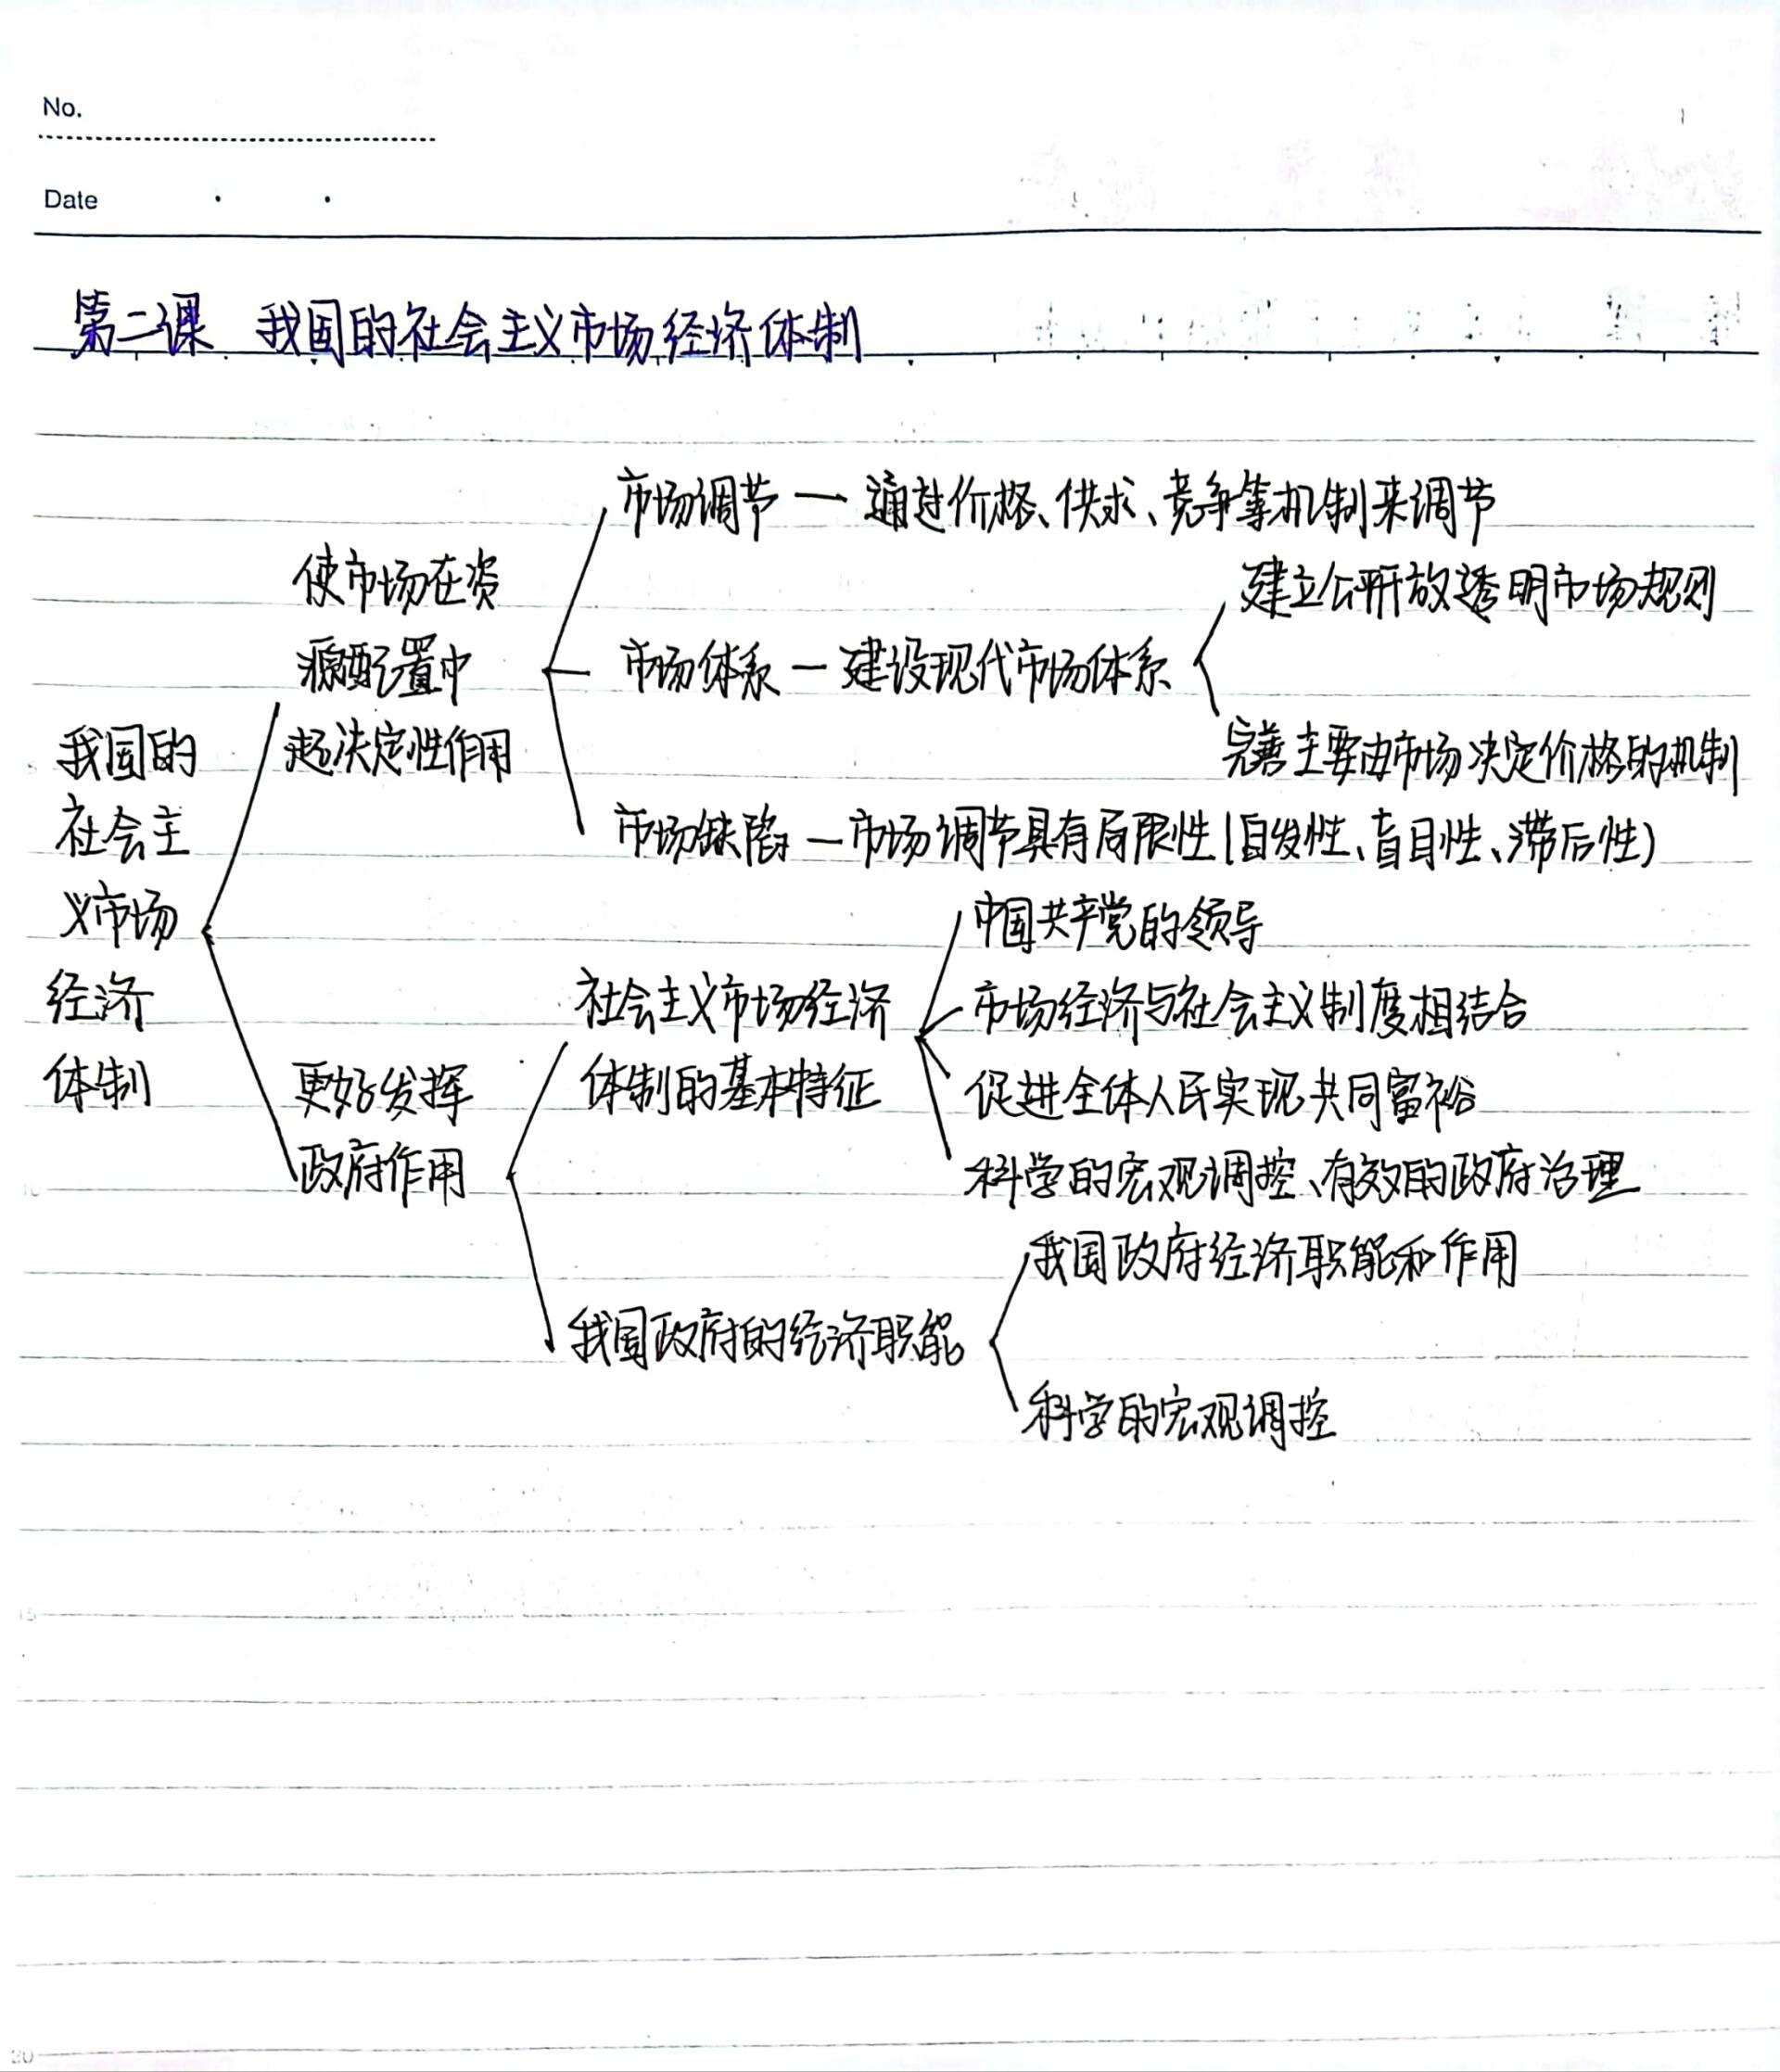 No.
Date
第二课 我国的社会主义市场经济体制
市场调节 — 通过价格、供求、竞争等机制来调节
使市场在资
源配置中
起决定性作用
建立公开放透明市场规则
市场体系 — 建设现代市场体系
完善主要由市场决定价格的机制
市场缺陷 — 市场调节具有局限性(自发性、盲目性、滞后性)
我国的
社会主
义市场
经济
体制
中国共产党的领导
社会主义市场经济
体制的基本特征
市场经济与社会主义制度相结合
促进全体人民实现共同富裕
科学的宏观调控、有效的政府治理
更好发挥
政府作用
我国政府经济职能和作用
我国政府的经济职能
科学的宏观调控
10
15
20